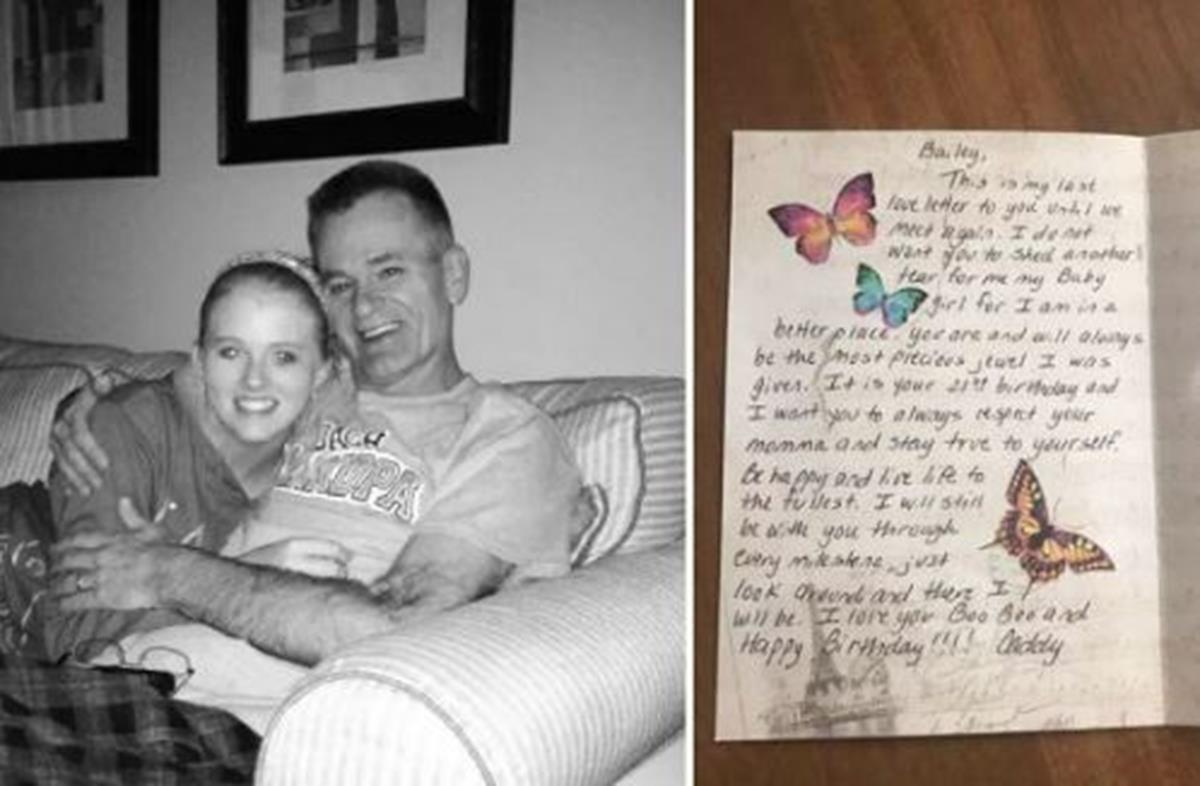 JACK
GRANDPA
Bailey,
This is my last
love letter to you until we
meet again. I do not
want you to shed another
tear for me my Baby
girl for I am in a
better place. you are and will always
be the most precious jewel I was
given. It is your 21st birthday and
I want you to always respect your
momma and stay true to yourself.
Be happy and live life to
the fullest. I will still
be with you through
every milestone, just
look around and there I
will be. I love you Boo Boo and
Happy Birthday!!!! Daddy